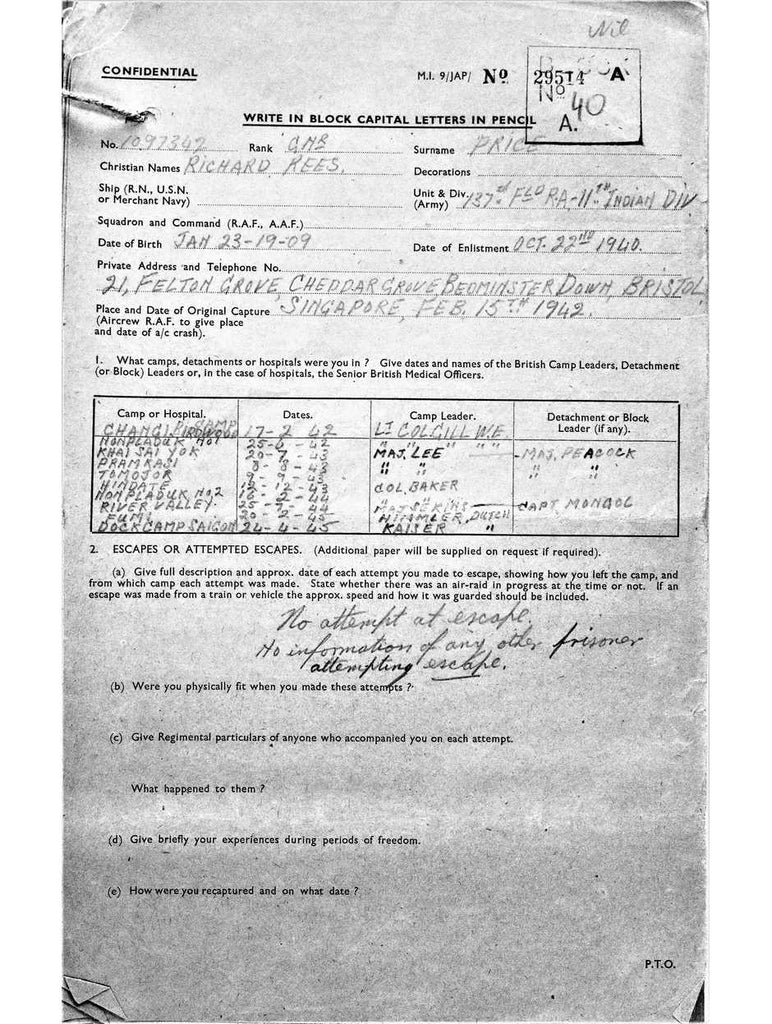 Nil
CONFIDENTIAL
M.I. 9/JAP/ No 29514 A
No 40
A.
WRITE IN BLOCK CAPITAL LETTERS IN PENCIL
No. 1097342 Rank GNR Surname PRICE
Christian Names RICHARD REES. Decorations
Ship (R.N., U.S.N.
or Merchant Navy)
Unit & Div.
(Army) 137 FLD R.A.-11TH INDIAN DIV
Squadron and Command (R.A.F., A.A.F.)
Date of Birth JAN 23-19-09 Date of Enlistment OCT. 22ND 1940.
Private Address and Telephone No.
21, FELTON GROVE, CHEDDAR GROVE BEDMINSTER DOWN, BRISTOL
Place and Date of Original Capture SINGAPORE, FEB. 15TH 1942.
(Aircrew R.A.F. to give place
and date of a/c crash).
1. What camps, detachments or hospitals were you in ? Give dates and names of the British Camp Leaders, Detachment
(or Block) Leaders or, in the case of hospitals, the Senior British Medical Officers.
Camp or Hospital. Dates. Camp Leader. Detachment or Block
Leader (if any).
CHANGI 17-2-42 LT COL GILL W.E.
NONPLADUK No1 25-6-42 " "
KHAI SAI YOK 20-7-43 MAJ. LEE MAJ. PEACOCK
PRAMKASI 8-8-43 " " " "
TOMOJOR
HINDATE 12-12-43 COL. BAKER
NONPLADUK No.2 16-2-44
RIVER VALLEY. CAPT MONGOL
20-2-45 HIMMLER, DUTCH
DOCK CAMP SAIGON 24-4-45 KAISER "
2. ESCAPES OR ATTEMPTED ESCAPES. (Additional paper will be supplied on request if required).
(a) Give full description and approx. date of each attempt you made to escape, showing how you left the camp, and
from which camp each attempt was made. State whether there was an air-raid in progress at the time or not. If an
escape was made from a train or vehicle the approx. speed and how it was guarded should be included.
No attempt at escape.
No information of any other prisoner
attempting escape.
(b) Were you physically fit when you made these attempts ?
(c) Give Regimental particulars of anyone who accompanied you on each attempt.
What happened to them ?
(d) Give briefly your experiences during periods of freedom.
(e) How were you recaptured and on what date ?
P.T.O.